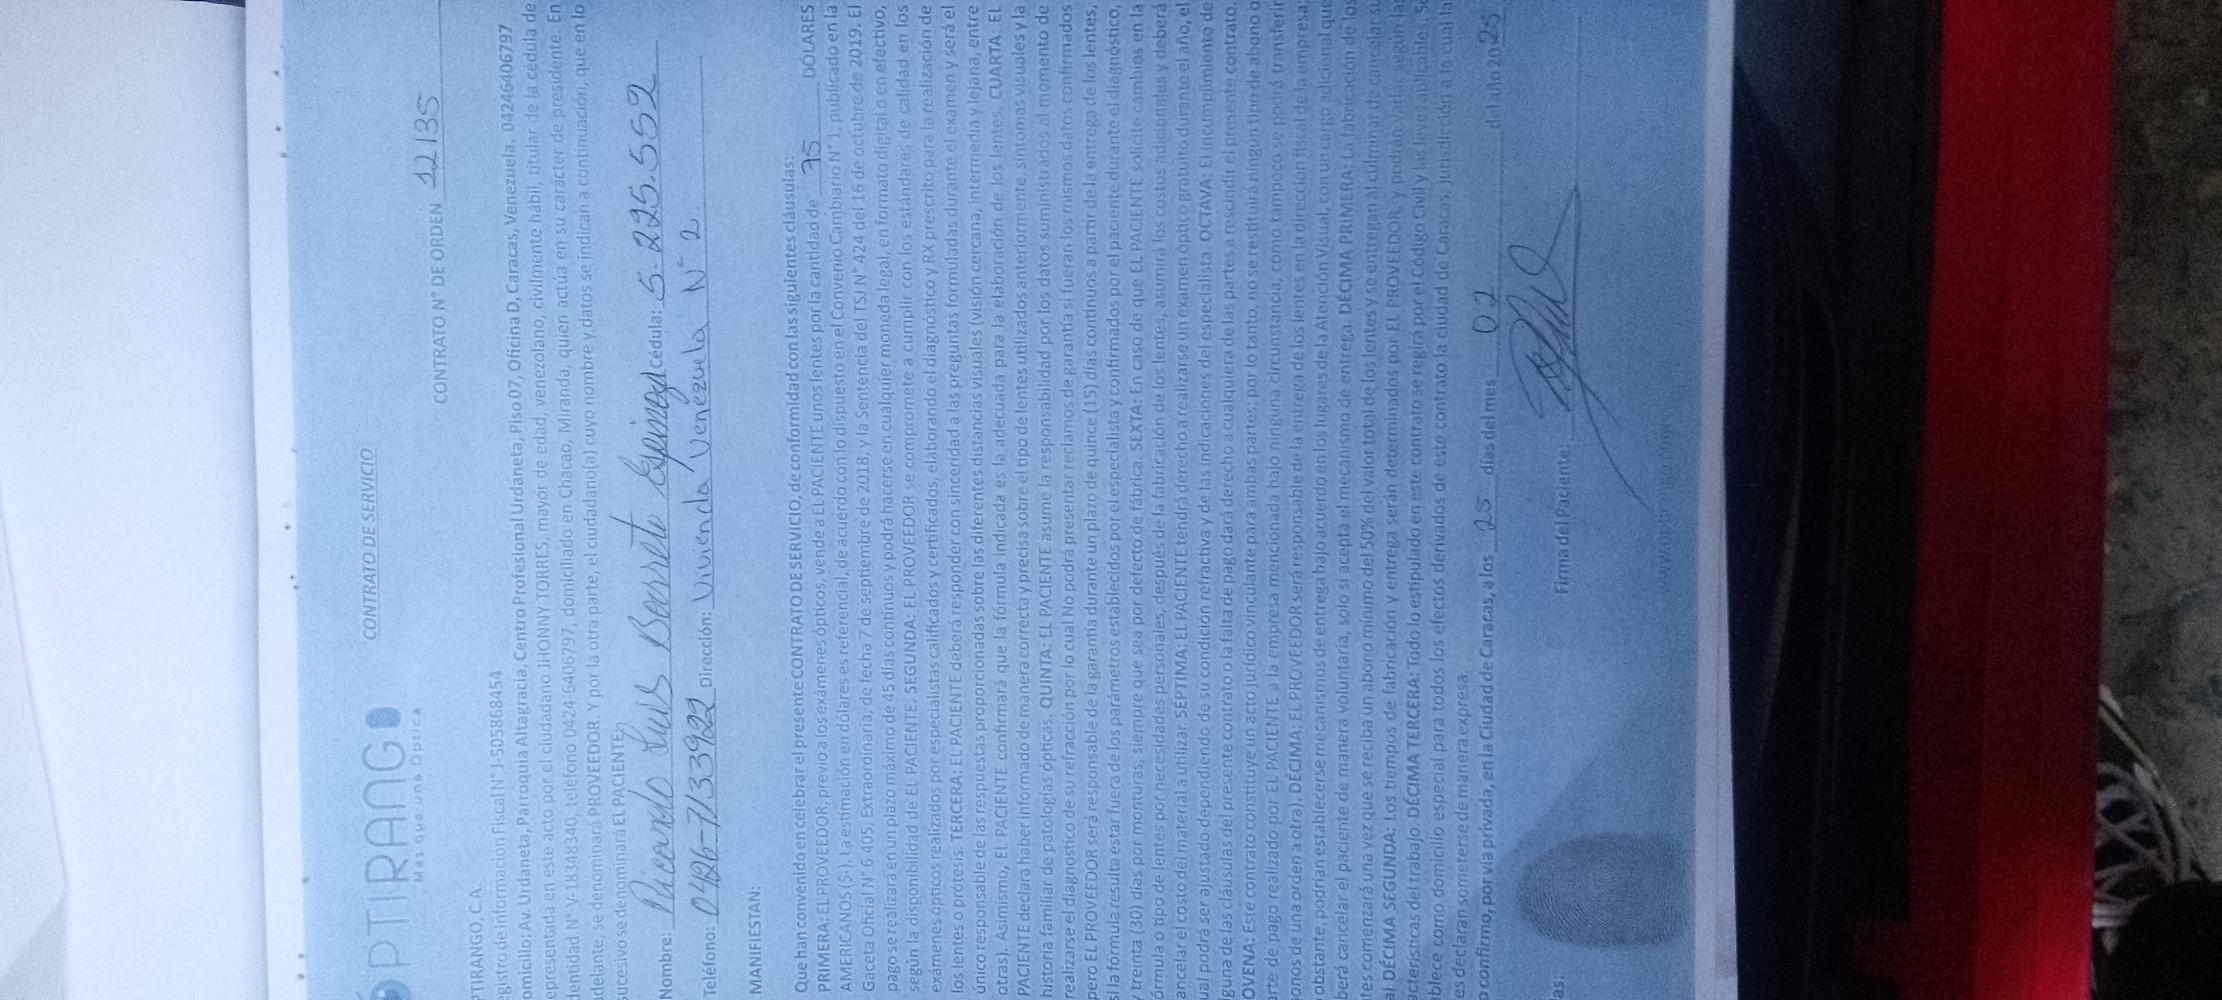 OPTIRANGO
Más que una Óptica
CONTRATO DE SERVICIO
CONTRATO N° DE ORDEN 12135
PTIRANGO, C.A.
egistro de Información Fiscal N° J-505868454
omicilio: Av. Urdaneta, Parroquia Altagracia, Centro Profesional Urdaneta, Piso 07, Oficina D, Caracas, Venezuela. 04246406797
epresentada en este acto por el ciudadano JHONNY TORRES, mayor de edad, venezolano, civilmente hábil, titular de la cédula de
dentidad N° V-18348340, teléfono 0424-6406797, domiciliado en Chacao, Miranda, quien actúa en su carácter de presidente. En
delante, se denominará PROVEEDOR. Y por la otra parte, el ciudadano(a) cuyo nombre y datos se indican a continuación, que en lo
sucesivo se denominará EL PACIENTE,
Nombre: Ricardo Luis Barreto Espinoza cédula: 5.225.552
Teléfono: 0426-7133922 Dirección: Vivienda Venezuela N° 2
MANIFIESTAN:
Que han convenido en celebrar el presente CONTRATO DE SERVICIO, de conformidad con las siguientes cláusulas:
PRIMERA: EL PROVEEDOR, previo a los exámenes ópticos, vende a EL PACIENTE unos lentes por la cantidad de 75 DÓLARES
AMERICANOS ($-). La estimación en dólares es referencial, de acuerdo con lo dispuesto en el Convenio Cambiario N° 1, publicado en la
Gaceta Oficial N° 6.405, Extraordinaria, de fecha 7 de septiembre de 2018, y la Sentencia del TSJ N° 424 del 16 de octubre de 2019. El
pago se realizará en un plazo máximo de 45 días continuos y podrá hacerse en cualquier moneda legal, en formato digital o en efectivo,
según la disponibilidad de EL PACIENTE. SEGUNDA: EL PROVEEDOR se compromete a cumplir con los estándares de calidad en los
exámenes ópticos realizados por especialistas calificados y certificados, elaborando el diagnóstico y RX prescrito para la realización de
los lentes o prótesis. TERCERA: EL PACIENTE deberá responder con sinceridad a las preguntas formuladas durante el examen y será el
único responsable de las respuestas proporcionadas sobre las diferentes distancias visuales (visión cercana, intermedia y lejana, entre
otras). Asimismo, EL PACIENTE confirmará que la fórmula indicada es la adecuada para la elaboración de los lentes. CUARTA: EL
PACIENTE declara haber informado de manera correcta y precisa sobre el tipo de lentes utilizados anteriormente, síntomas visuales y la
historia familiar de patologías ópticas. QUINTA: EL PACIENTE asume la responsabilidad por los datos suministrados al momento de
realizarse el diagnostico de su refracción por lo cual No podrá presentar reclamos de garantía si fueran los mismos datos confirmados
pero EL PROVEEDOR será responsable de la garantía durante un plazo de quince (15) días continuos a partir de la entrega de los lentes,
si la fórmula resulta estar fuera de los parámetros establecidos por el especialista y confirmados por el paciente durante el diagnóstico,
y treinta (30) días por monturas, siempre que sea por defecto de fábrica. SEXTA: En caso de que EL PACIENTE solicite cambios en la
órmula o tipo de lentes por necesidades personales, después de la fabricación de los lentes, asumirá los costos adicionales y deberá
ancelar el costo del material a utilizar. SÉPTIMA: EL PACIENTE tendrá derecho a realizarse un examen óptico gratuito durante el año, el
ual podrá ser ajustado dependiendo de su condición refractiva y de las indicaciones del especialista. OCTAVA: El incumplimiento de
guna de las cláusulas de presente contrato o la falta de pago dará derecho a cualquiera de las partes a rescindir el presente contrato.
OVENA: Este contrato constituye un acto jurídico vinculante para ambas partes; por lo tanto, no se restituirá ningún tipo de abono o
arte de pago realizado por EL PACIENTE a la empresa mencionada bajo ninguna circunstancia, como tampoco se podrá transferir
bonos de una orden a otra). DÉCIMA: EL PROVEEDOR será responsable de la entrega de los lentes en la dirección fiscal de la empresa;
obstante, podrían establecerse mecanismos de entrega bajo acuerdo en los lugares de la Atención Visual, con un cargo adicional que
berá cancelar el paciente de manera voluntaria, solo si acepta el mecanismo de entrega. DÉCIMA PRIMERA: La fabricación de los
tes comenzará una vez que se reciba un abono mínimo del 50% del valor total de los lentes y se entregan al culminar de cancelar su
al DÉCIMA SEGUNDA: Los tiempos de fabricación y entrega serán determinados por EL PROVEEDOR, y podrán variar según las
acterísticas del trabajo. DÉCIMA TERCERA: Todo lo estipulado en este contrato se regirá por el Código Civil y las leye aplicables. Se
blece como domicilio especial para todos los efectos derivados de este contrato la ciudad de Caracas, jurisdicción a la cual la
es declaran someterse de manera expresa.
o confirmo, por vía privada, en la Ciudad de Caracas, a los 25 días del mes 02 del año 2025
Firma del Paciente:
las: